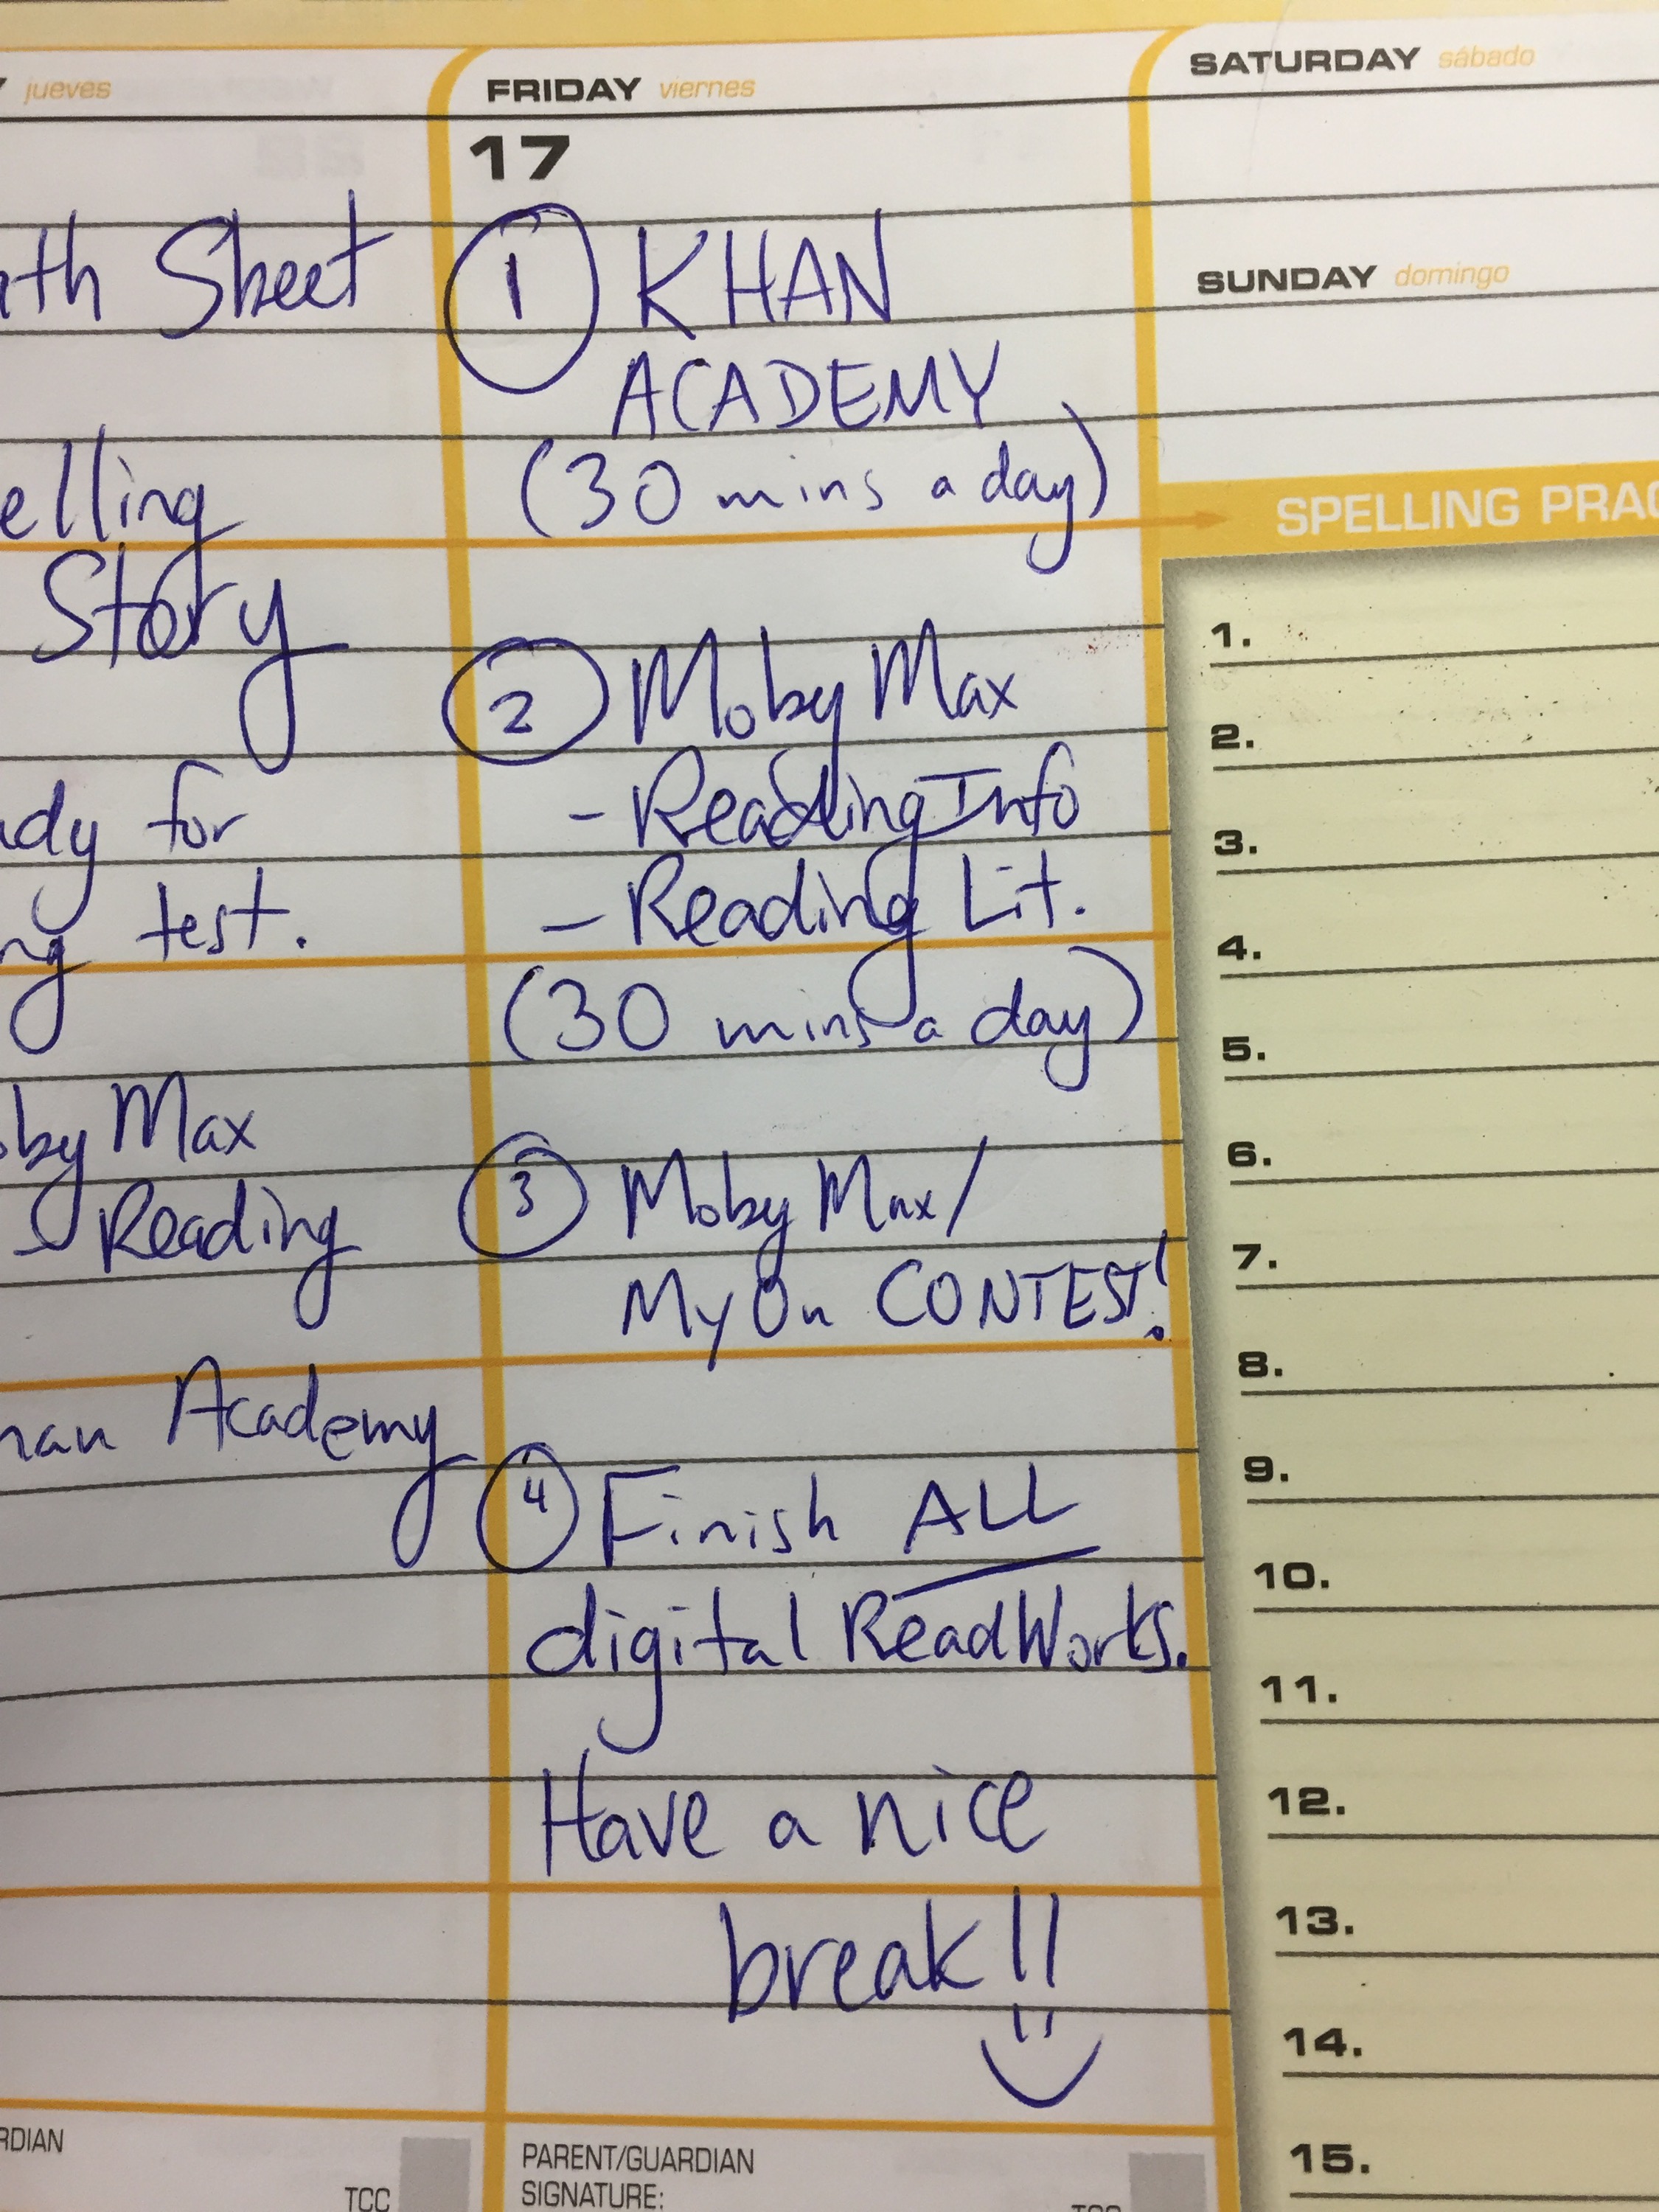 jueves
th Sheet
elling
Story
dy for
ng test.
by Max
Reading
han Academy
RDIAN
TCC
FRIDAY viernes
17
1 KHAN
ACADEMY
(30 mins a day)
2 Moby Max
- Reading Info
- Reading Lit.
(30 mins a day)
3 Moby Max/
MyOn CONTEST!
4 Finish ALL
digital ReadWorks.
Have a nice
break!!
PARENT/GUARDIAN
SIGNATURE:
SATURDAY sábado
SUNDAY domingo
SPELLING PRAC
1.
2.
3.
4.
5.
6.
7.
8.
9.
10.
11.
12.
13.
14.
15.